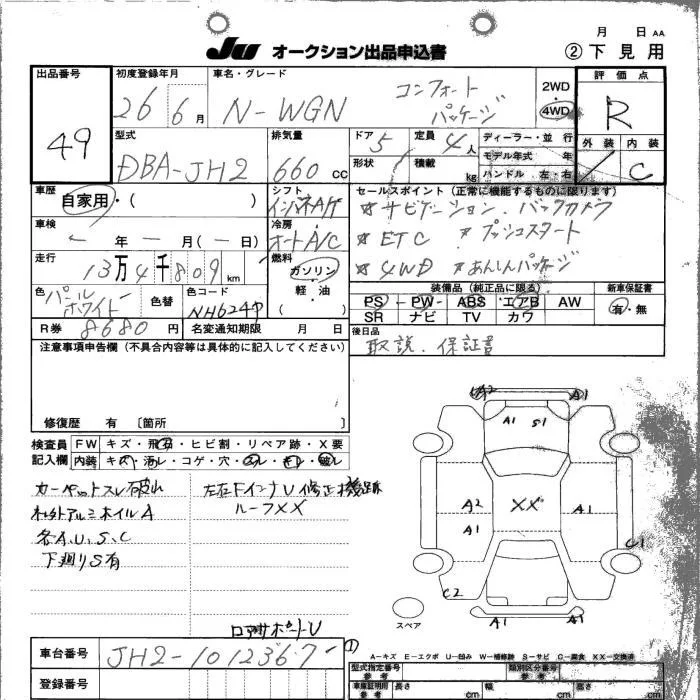 JU オークション出品申込書
月 日 AA
② 下見用
出品番号
49
初度登録年月
26 6月
車名・グレード
N-WGN コンフォートパッケージ
2WD・4WD
評価点
R
外装 内装
C
型式
DBA-JH2
排気量
660 CC
ドア 5
定員 4人
形状
積載 kg
ディーラー・並行
モデル年式 年
ハンドル 左・右
車歴
自家用・( )
シフト
インパネA/T
セールスポイント(正常に機能するものに限ります)
☆ナビゲーション.バックカメラ
☆ETC ☆プッシュスタート
☆4WD ☆あんしんパッケージ
車検
年 月(ー日)
冷房
オートA/C
走行
13万4千809km
燃料
ガソリン
軽・油
( )
色
パールホワイト
色替
色コード
NH624P
装備品(純正品に限る)
PS PW ABS エアB AW
SR ナビ TV カワ
新車保証書
有・無
R券 8680円
名変通知期限 月 日
後日品
取説.保証書
注意事項申告欄(不具合内容等は具体的に記入してください)
修復歴 有 〔箇所
検査員記入欄
FW キズ・飛石・ヒビ割・リペア跡・X要
内装 キズ・汚レ・コゲ・穴・スレ・キレ・破レ
カーペットスレ破れ
社外アルミホイルA
各A.U.S.C
下廻りS有
左右FインナU修正機跡
ルーフXX
リアサポートU
A2 A1
A1 S1
A2
A1
XX
A1
C1
C2
A1 A1
スペア
A-キズ E-エクボ U-凹み W-補修跡 S-サビ C-腐食 XX-交換済
車台番号
JH2-1012367
登録番号
型式指定番号 参考
類別区分番号 参考
車庫証明用 参考
長さ cm
幅 cm
高さ cm